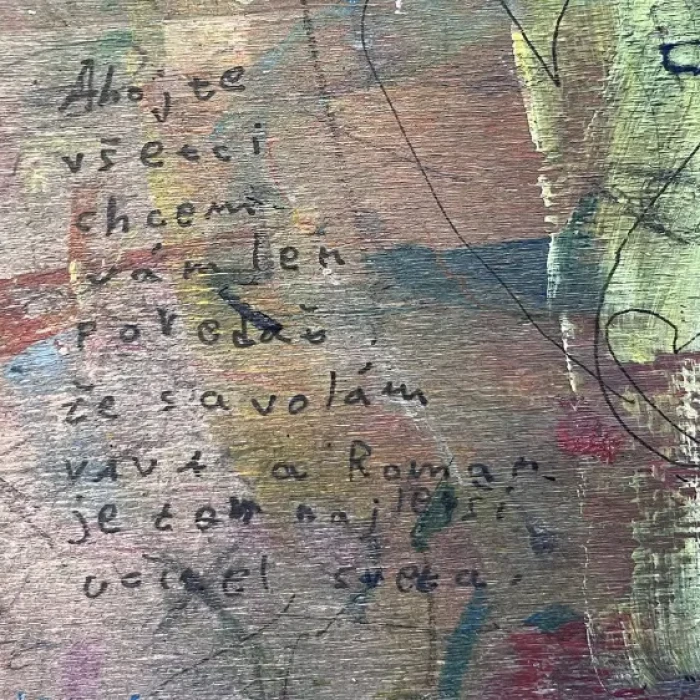 Ahojte
všetci
chcem
vám len
povedať
že sa volám
vivi a Roman
je ten najlepší
učitel sveta.